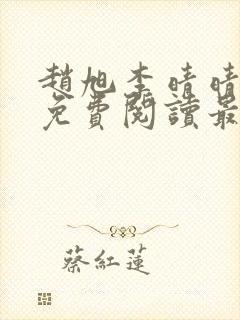 趙旭李晴晴
免費閱讀最
蔡紅蓮